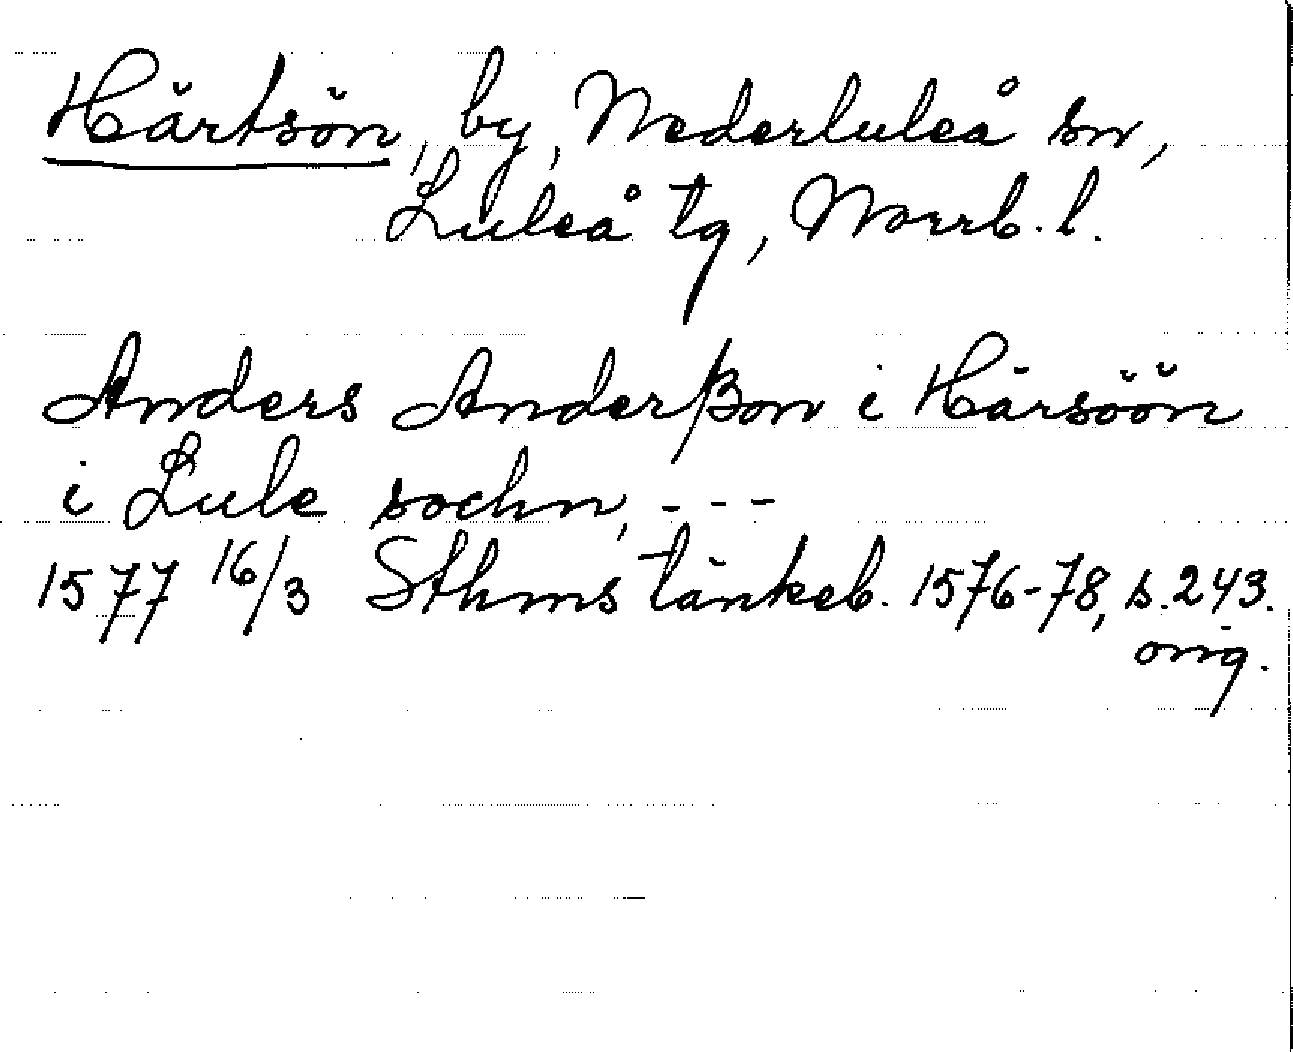 Härtsön, by, Nederluleå sn,
Luleå tg, Norrb. l.
Anders Anderßon i Härsöön
i Lule sochn, - - -
1577 16/3 Sthms tänkeb. 1576-78, s. 243.
orig.